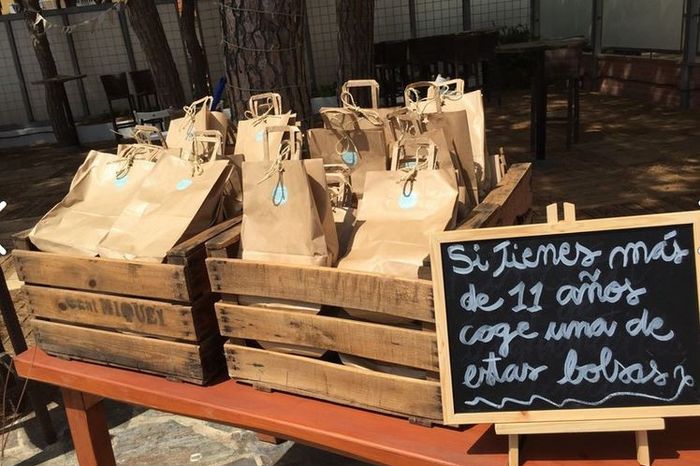 Si Tienes más
de 11 años
coge una de
estas bolsas